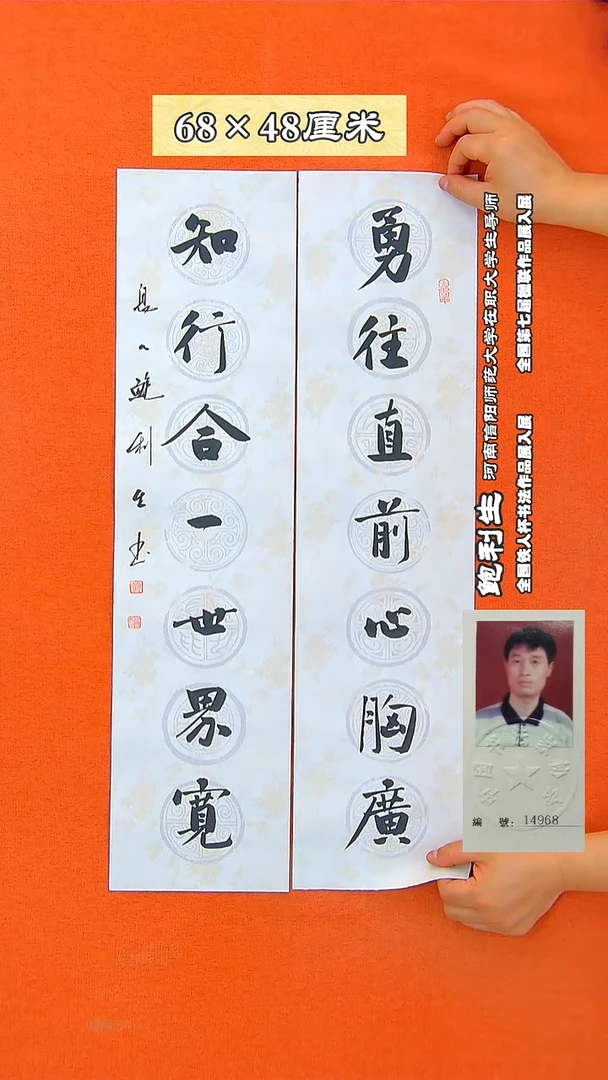 68×48厘米
勇往直前心胸廣
知行合一世界寬
鮑利生书
鲍利生 河南信阳师范大学在职大学生导师
全国第七届楹联作品展入展
全国铁人杯书法作品展入展
編 號：14968